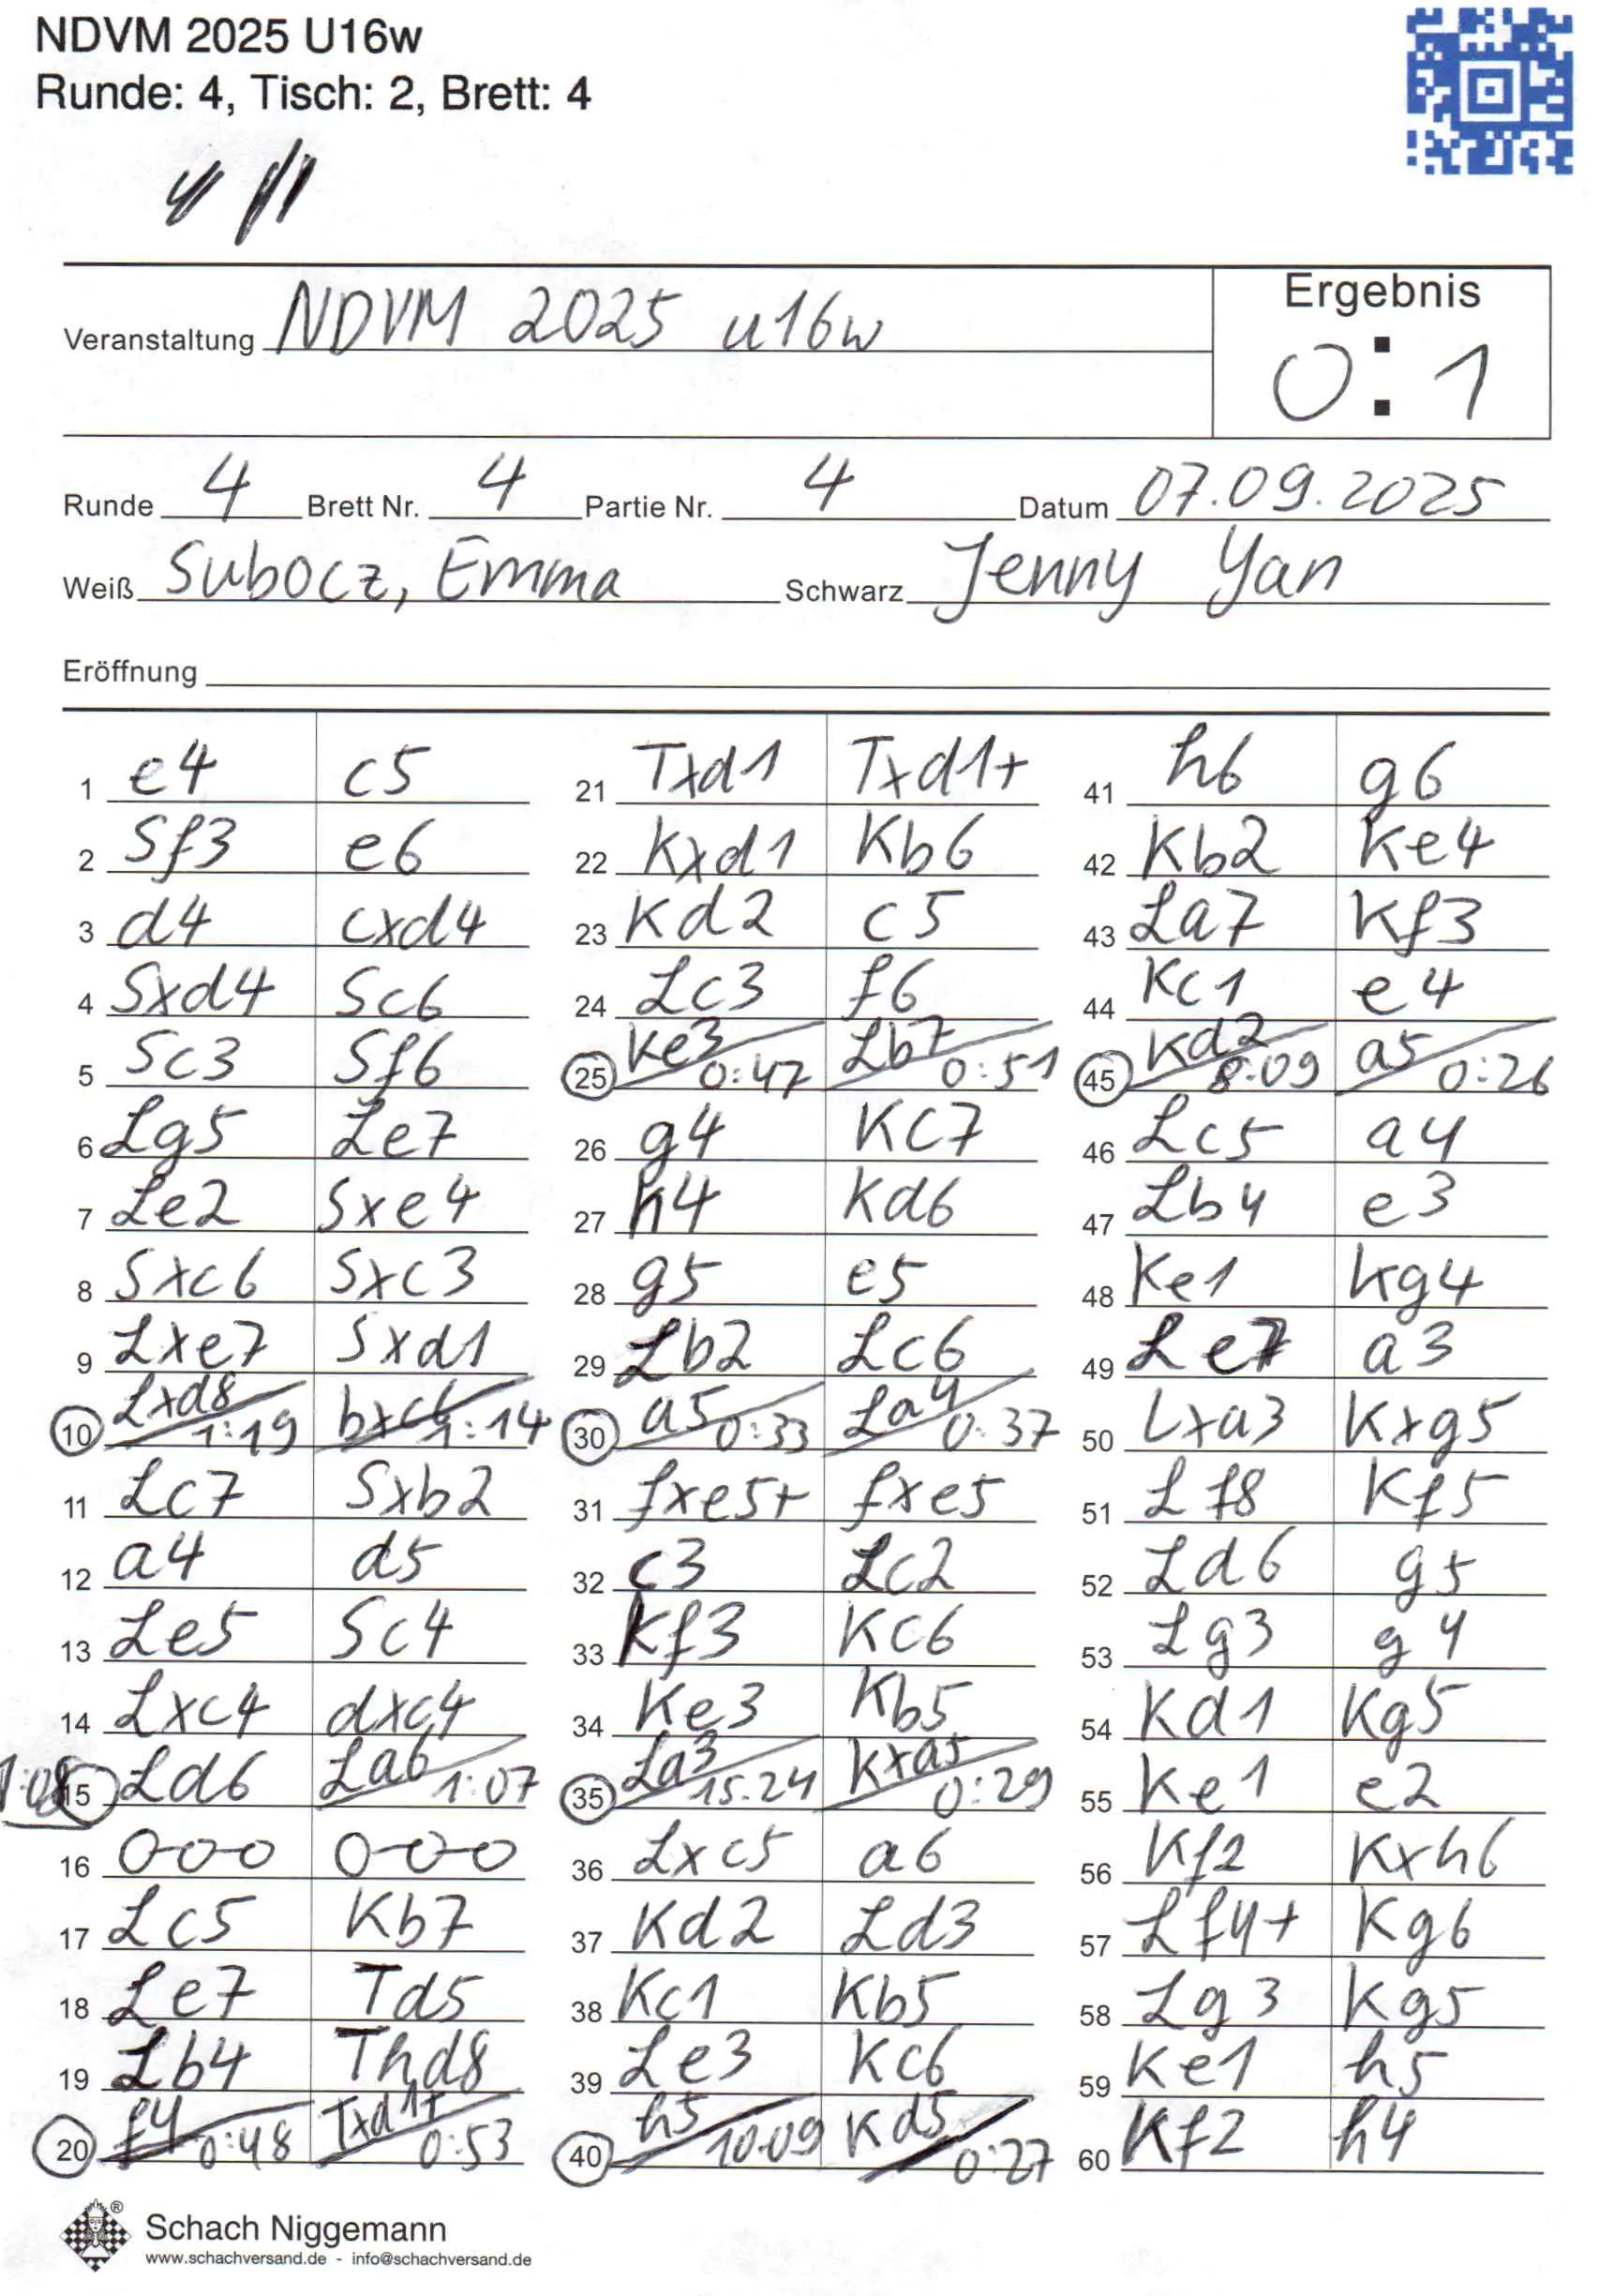 NDVM 2025 U16w
Runde: 4, Tisch: 2, Brett: 4
Veranstaltung NDVM 2025 u16w
Ergebnis
0:1
Runde 4 Brett Nr. 4 Partie Nr. 4 Datum 07.09.2025
Weiß Subocz, Emma Schwarz Jenny Yan
Eröffnung
1 e4 c5
2 Sf3 e6
3 d4 cxd4
4 Sxd4 Sc6
5 Sc3 Sf6
6 Lg5 Le7
7 Le2 Sxe4
8 Sxc6 Sxc3
9 Lxe7 Sxd1
10 Lxd8 1:19 bxc6 1:14
11 Lc7 Sxb2
12 a4 d5
13 Le5 Sc4
14 Lxc4 dxc4
15 Ld6 La6 1:07
16 0-0-0 0-0-0
17 Lc5 Kb7
18 Le7 Td5
19 Lb4 Thd8
20 f4 0:48 Txd1+ 0:53
21 Txd1 Txd1+
22 Kxd1 Kb6
23 Kd2 c5
24 Lc3 f6
25 Ke3 0:47 Lb7 0:51
26 g4 Kc7
27 h4 Kd6
28 g5 e5
29 Lb2 Lc6
30 a5 0:33 La4 0:37
31 fxe5+ fxe5
32 c3 Lc2
33 Kf3 Kc6
34 Ke3 Kb5
35 La3 15.24 Kxa5 0:29
36 Lxc5 a6
37 Kd2 Ld3
38 Kc1 Kb5
39 Le3 Kc6
40 h5 10.09 Kd5 0:27
41 h6 g6
42 Kb2 Ke4
43 La7 Kf3
44 Kc1 e4
45 Kd2 8:09 a5 0:26
46 Lc5 a4
47 Lb4 e3
48 Ke1 Kg4
49 Le7 a3
50 Lxa3 Kxg5
51 Lf8 Kf5
52 Ld6 g5
53 Lg3 g4
54 Kd1 Kg5
55 Ke1 e2
56 Kf2 Kxh6
57 Lf4+ Kg6
58 Lg3 Kg5
59 Ke1 h5
60 Kf2 h4
Schach Niggemann
www.schachversand.de - info@schachversand.de